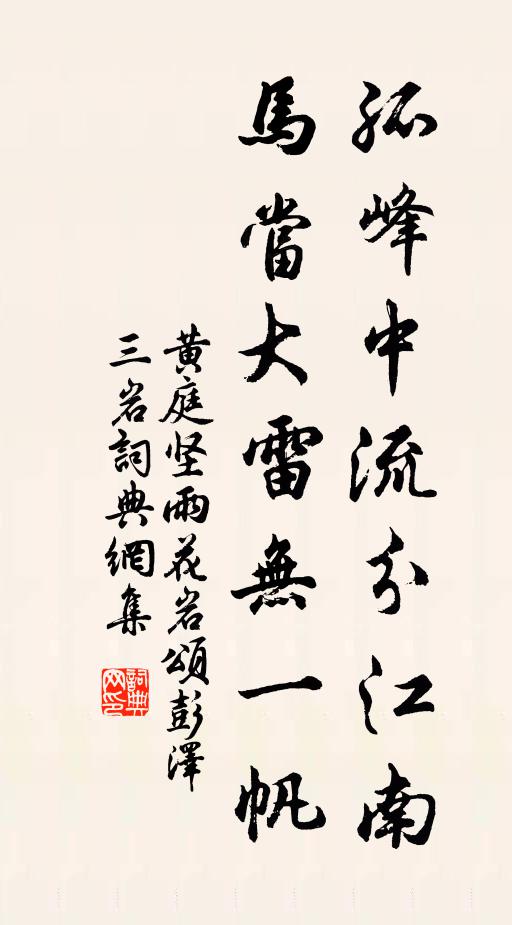 孤峰中流分江南
馬當大雷無一帆
黃庭坚雨花岩頌彭澤
三岩詞典網集
詞典网